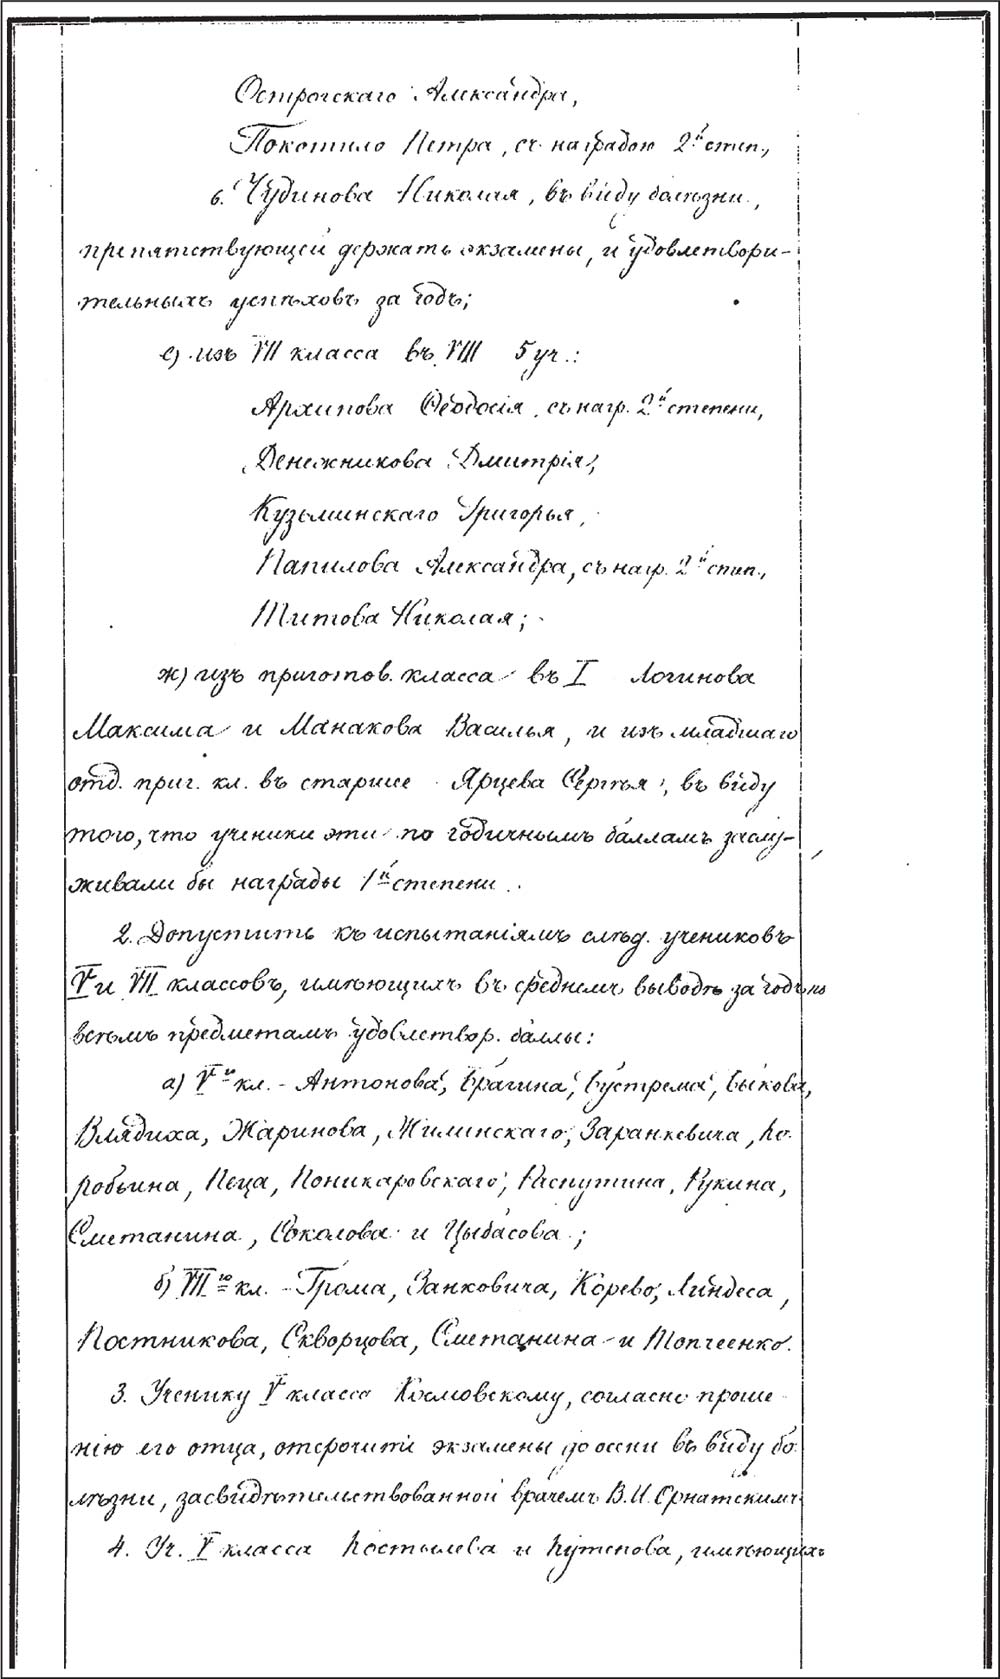 Острогскаго Александра,
Покотило Петра, съ наградою 2й степ.,
6. Чудинова Николая, въ виду болѣзни,
препятствующей держать экзамены, и удовлетвори-
тельныхъ успѣховъ за годъ;
е) изъ VII класса въ VIII 5 уч.:
Архипова Ѳеодосія, съ нагр. 2й степени,
Денежникова Дмитрія,
Кузьминскаго Григорья,
Папилова Александра, съ нагр. 2й степ.,
Титова Николая;
ж) изъ приготов. класса въ I Логинова
Максима и Манакова Василья, и изъ младшаго
отд. приг. кл. въ старшее Ярцева Сергѣя, въ виду
того, что ученики эти по годичнымъ балламъ заслу-
живали бы награды 1й степени.
2. Допустить къ испытаніямъ слѣд. учениковъ
V и VII классовъ, имѣющихъ въ среднемъ выводѣ за годъ по
всѣмъ предметамъ удовлетвор. баллы:
а) Vго кл. - Антонова, Брагина, Бустрема, Быкова,
Влядиха, Жаринова, Жилинскаго, Заранкевича, Ко-
робьина, Пеца, Поникаровскаго, Распутина, Рукина,
Сметанина, Соколова и Цыбасова;
б) VIIго кл. - Грома, Занковича, Корево, Линдеса,
Постникова, Скворцова, Сметанина и Топчеенко.
3. Ученику V класса, согласно проше-
нію его отца, отсрочить экзамены до осени въ виду бо-
лѣзни, засвидѣтельствованной врачемъ В. И. Орнатскимъ.
4. Уч. V класса Костылева и Кутенова, имѣющихъ